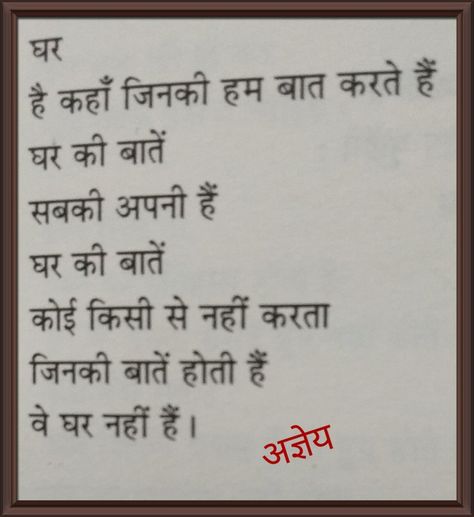 घर
है कहाँ जिनकी हम बात करते हैं
घर की बातें
सबकी अपनी हैं
घर की बातें
कोई किसी से नहीं करता
जिनकी बातें होती हैं
वे घर नहीं हैं ।
अज्ञेय